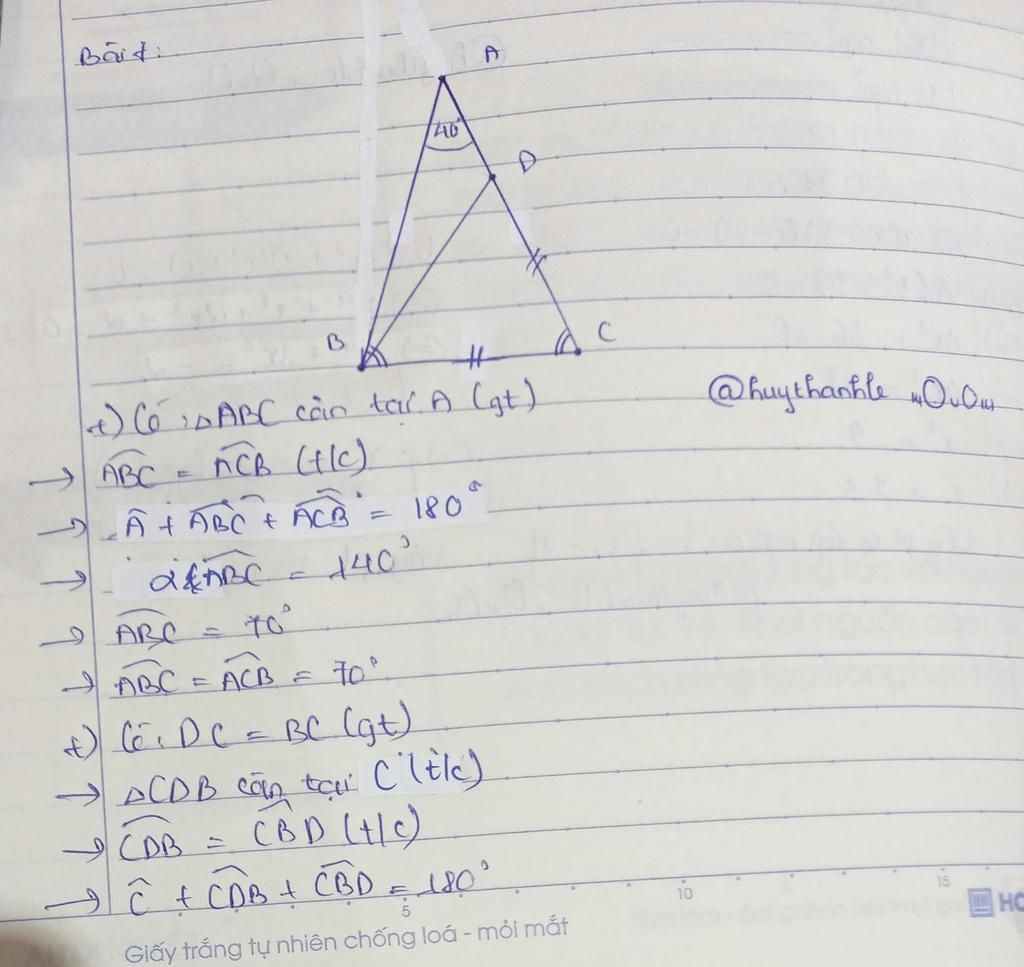 Bài 1:
A
40°
D
B
C
+) Có: △ABC cân tại A (gt)
@huythanhle "OuO"
→ ABC = ACB (t/c)
→ Â + ABC + ACB = 180°
→ 2 ABC = 140°
→ ABC = 70°
→ ABC = ACB = 70°
+) Có: DC = BC (gt)
→ △CDB cân tại C (t/c)
→ CDB = CBD (t/c)
→ Ĉ + CDB + CBD = 180°
5 10 15
HO
Giấy trắng tự nhiên chống loá - mỏi mắt